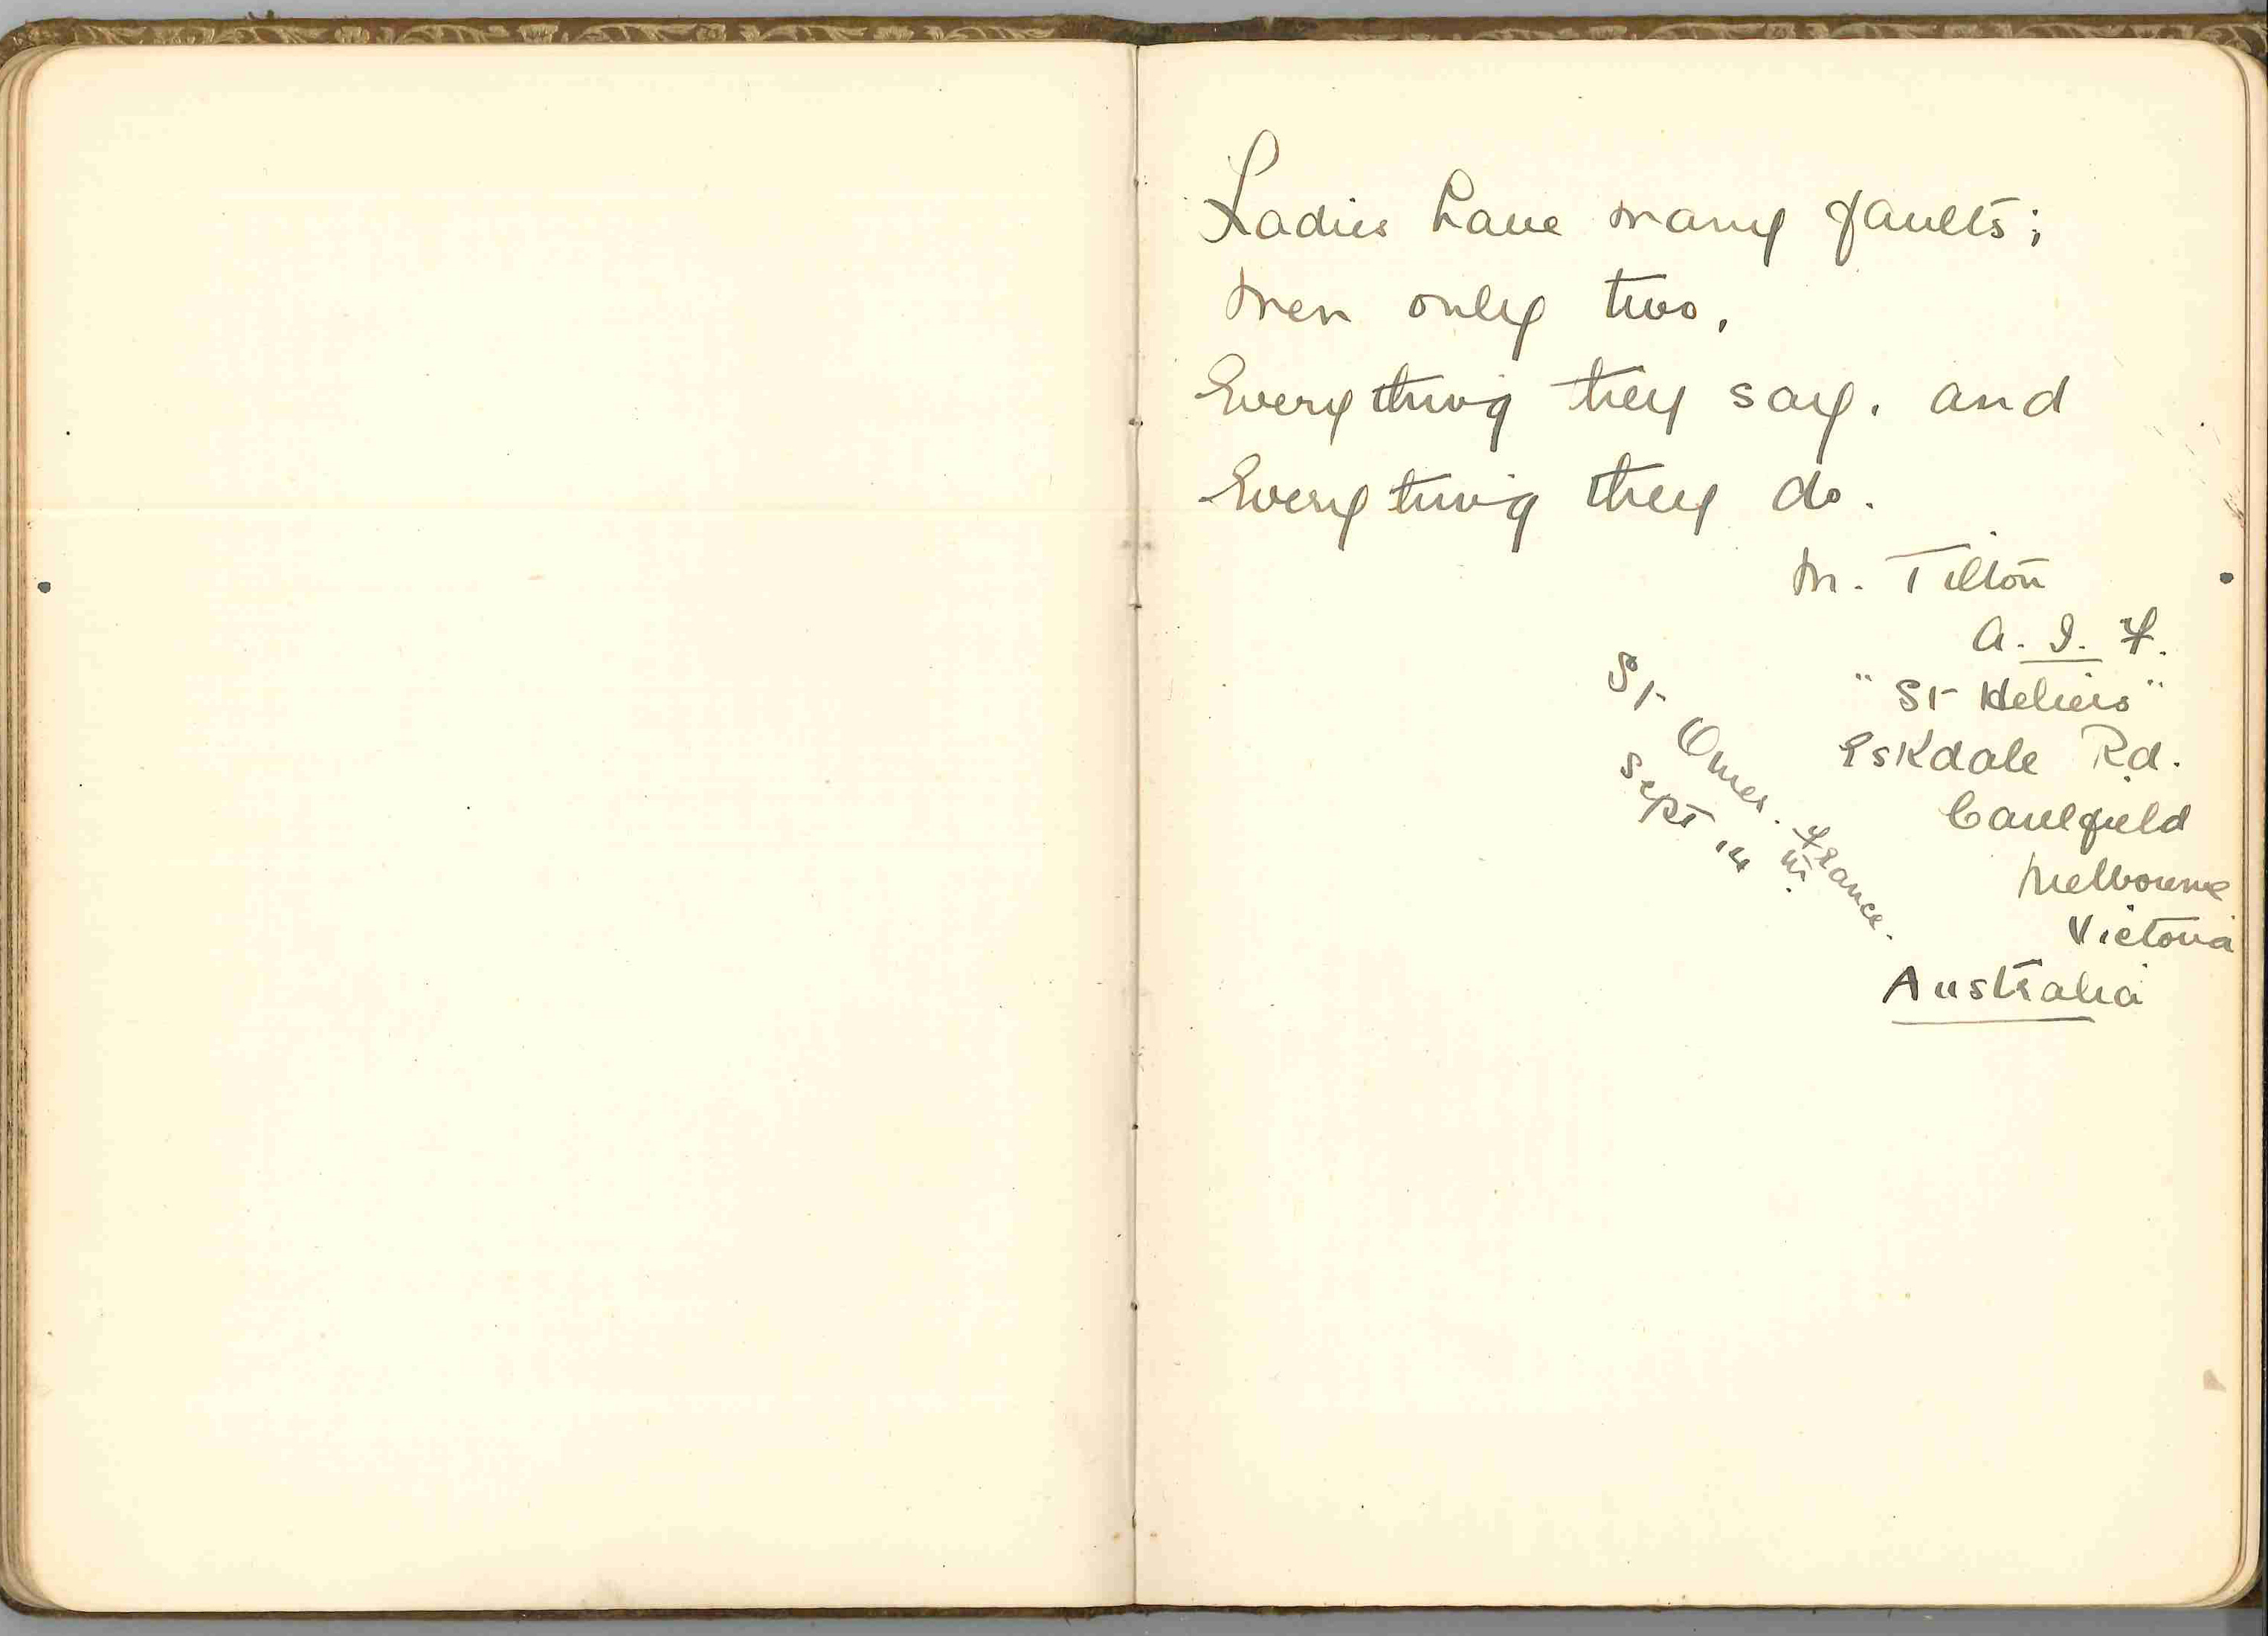 Ladies have many faults;
men only two.
Everything they say. and
Everything they do.
M. Tilton
A. I. F.
"St Heliers"
Eskdale Rd.
Caulfield
Melbourne
Victoria
Australia
St Omer. France.
Sept 14